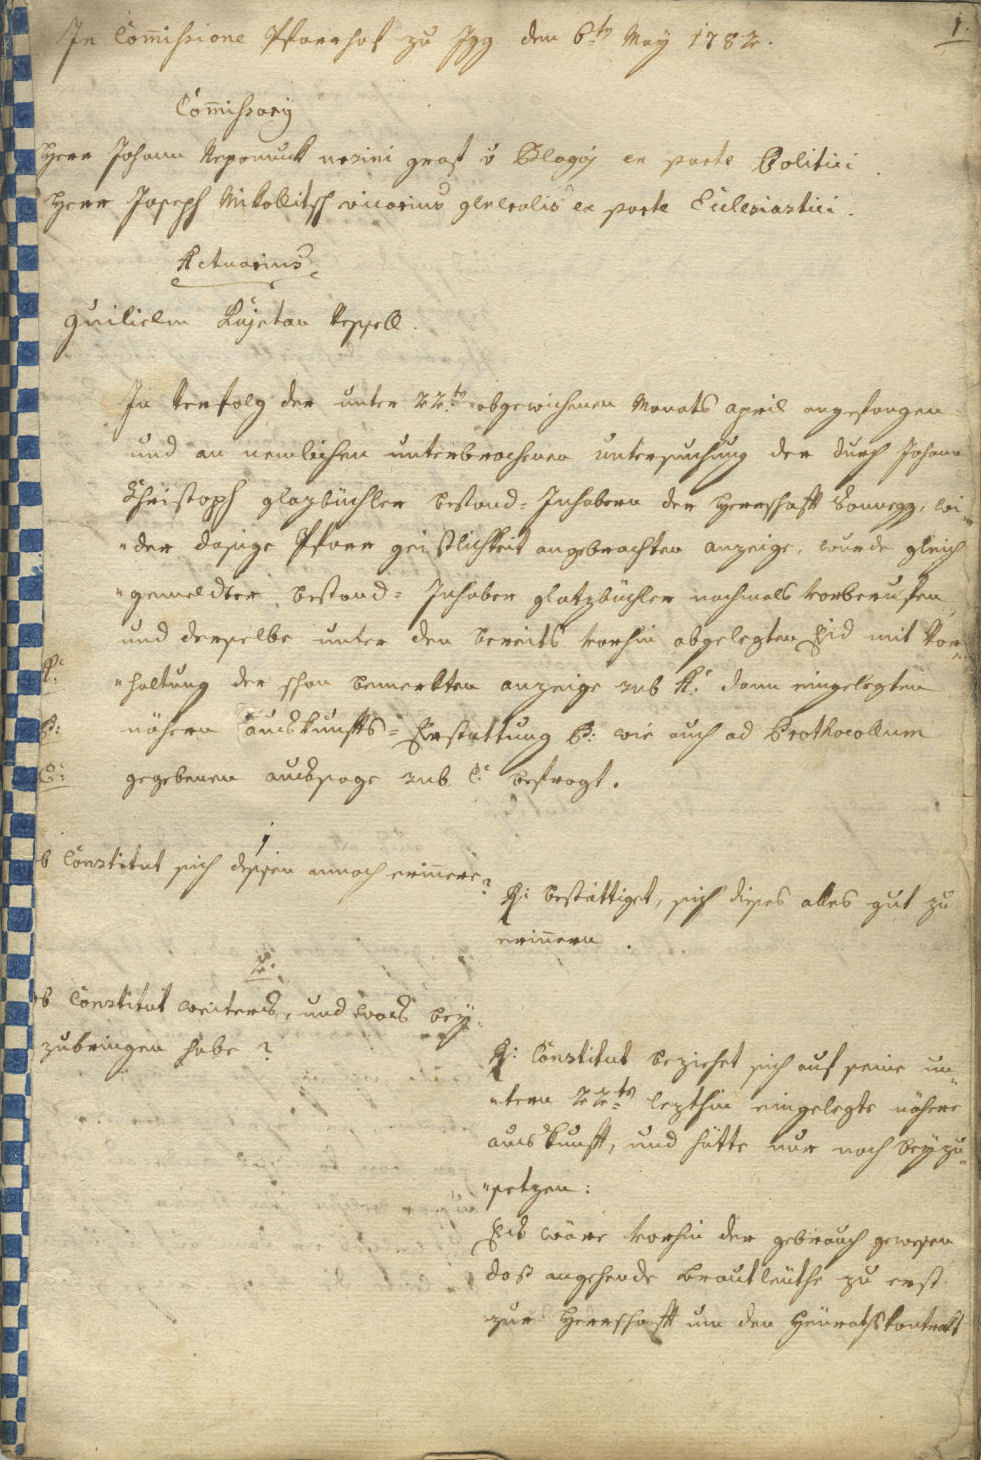 1.
In Commissione Pfarrhof zu Igg den 6ten May 1782.
Commissarij
Herr Johann Nepomuck Ursini Graf v Blagaÿ ex parte Politici
Herr Joseph Mikollitsch vicarius generalis ex parte Ecclesiastici.
Actuarius
Guilielm Kajetan Reppell.
In Verfolg der unter 22ten abgewichenen Monats april angefangen
und an nemlichen unterbrochenen untersuchung der durch Johann
Christoph Glazbüchler bestand-Inhabern der Herrschafft Sonnegg, wi-
"der dasige Pfarr geistlichkeit angebrachten anzeige, wurde gleich
"gemeldter bestand-Inhaber glatzbüchler nachmals vorberufen,
und derselbe unter den bereits vorhin abgelegten Eid mit Vor-
A: "haltung der schon bemerkten anzeige sub A: dann eingelegten
B: nähern auskunffts-Erstattung B: wie auch ad Prothocollum
C: gegebenen aussage sub C: befragt.
1
ob Constitut sich dessen annoch erinnere?
R: bestättiget, sich dieses alles gut zu
erinnern.
2.
ob Constitut weiters, und was bey-
zubringen habe?
R: Constitut beziehet sich auf seine un-
"tern 22ten lezthin eingelegte nähere
auskunfft, und hätte nur noch beyzu-
"setzen:
Es wäre vorhin der gebrauch gewesen
daß angehende brautleuthe zu erst
zur Herrschafft um den Heuraths kontrakt